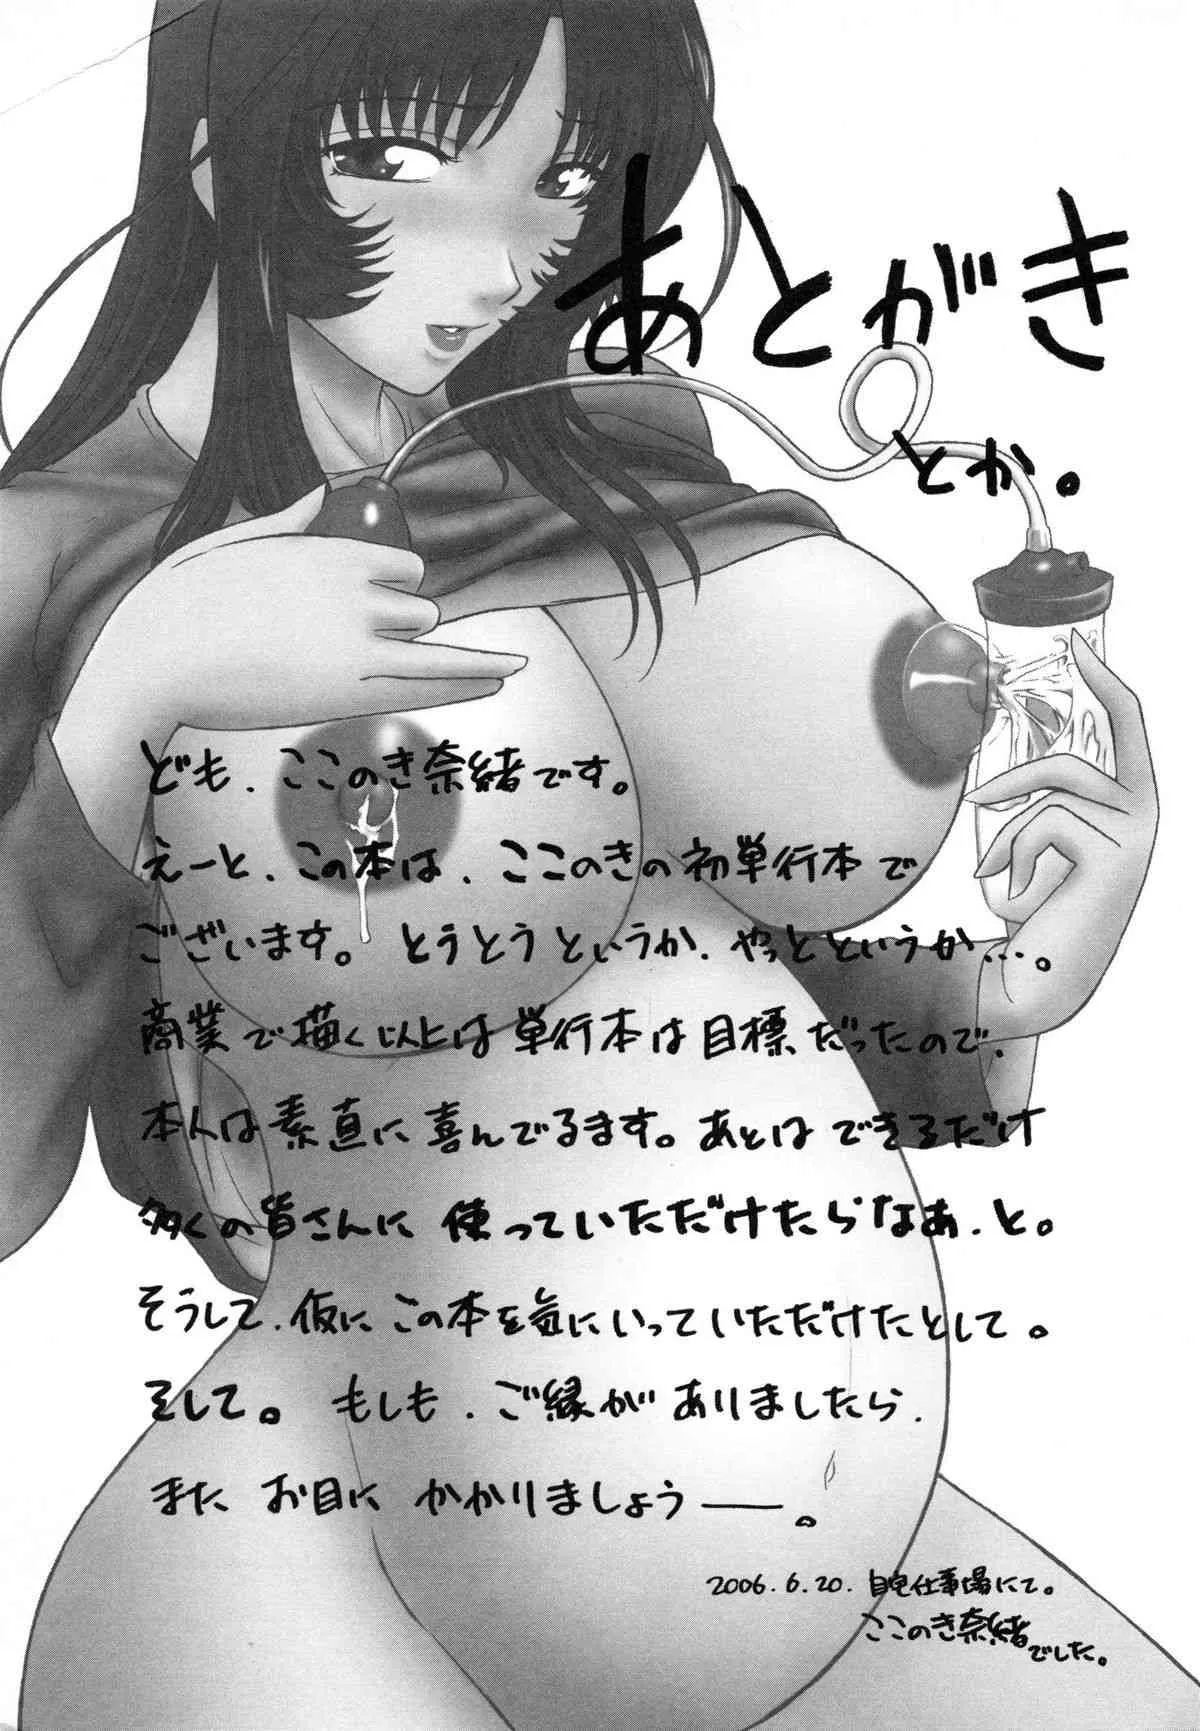 あとがき
とか。
ども、ここのき奈緒です。
えーと、この本は、ここのきの初単行本で
ございます。とうとうというか、やっとというか…。
商業で描く以上は単行本は目標だったので、
本人は素直に喜んでるます。あとはできるだけ
多くの皆さんに使っていただけたらなぁ、と。
そうして、仮にこの本を気にいっていただけたとして。
そして。もしも、ご縁がありましたら、
また、お目にかかりましょう——。
2006.6.20. 自宅仕事場にて。
ここのき奈緒でした。